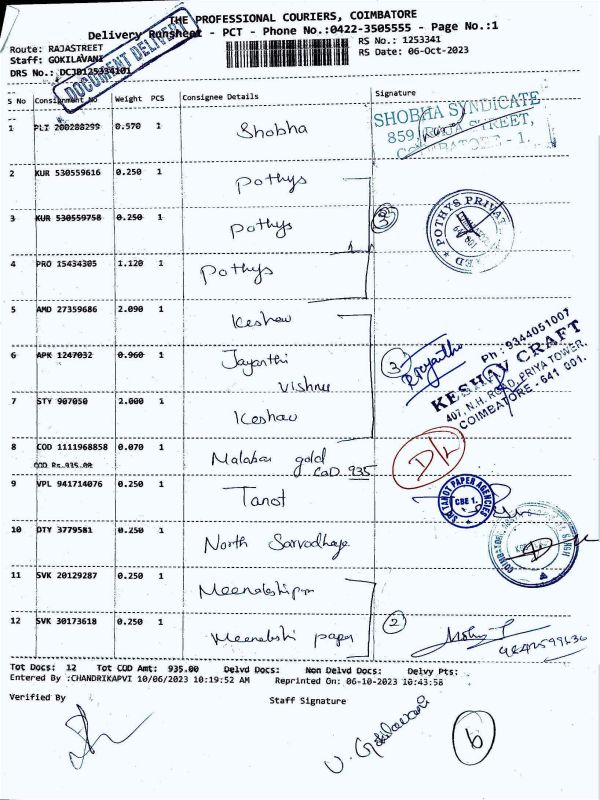 THE PROFESSIONAL COURIERS, COIMBATORE
Delivery Runsheet - PCT - Phone No.:0422-3505555 - Page No.:1
Route: RAJASTREET
RS No.: 1253341
Staff: GOKILAVANI
RS Date: 06-Oct-2023
DRS No.: DCJB125334101
DOCUMENT DELIVERY
S No Consignment No Weight PCS Consignee Details Signature
1 PLI 200288299 0.570 1 Shobha
SHOBHA SYNDICATE
859, RAJA STREET,
COIMBATORE - 1.
2 KUR 530559616 0.250 1 Pothys
3 KUR 530559758 0.250 1 Pothys 3
POTHYS PRIVATE
4 PRO 15434305 1.120 1 Pothys
5 AMD 27359686 2.090 1 Keshav
6 APK 1247032 0.960 1 Jayanthi
Vishnu
3
Ph : 9344051007
KESHAV CRAFT
407, N.H. ROAD, PRIYA TOWER,
COIMBATORE - 641 001.
7 STY 907050 2.000 1 Keshav
8 COD 1111968858 0.070 1 Malabar gold
COD Rs.935.00 COD 935
9 VPL 941714076 0.250 1 Tanot
SRI TANOT PAPER AGENCIES
CBE 1.
10 DTY 3779581 0.250 1 North Sarvodhaya
11 SVK 20129287 0.250 1
12 SVK 30173618 0.250 1 Meenakshi paper
2
Tot Docs: 12 Tot COD Amt: 935.00 Delvd Docs: Non Delvd Docs: Delvy Pts:
Entered By :CHANDRIKAPVI 10/06/2023 10:19:52 AM Reprinted On: 06-10-2023 10:43:58
Verified By
Staff Signature
V. Gokilavani
6